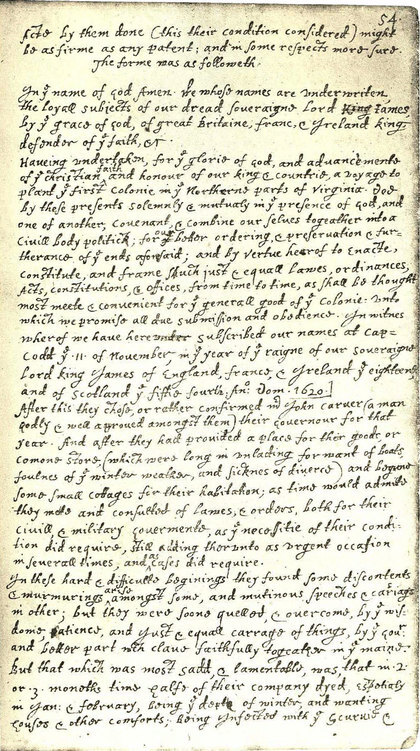 54
Acts by them done (this their condition considered) might
be as firme as any patent; and in some respects more sure.
The forme was as followeth.
In yͤ name of god Amen. We whose names are underwriten,
the loyall subjects of our dread soveraigne Lord King James
by yͤ grace of god, of great Britaine, franc, & Ireland king,
defender of yͤ faith, &c
Haveing undertaken, for yͤ glorie of god, and advancemente
of yͤ christian faith and honour of our king & countrie, a voyage to
plant yͤ first colonie in yͤ Northerne parts of Virginia. Doe
by these presents solemnly & mutualy in yͤ presence of god, and
one of another, covenant, & combine our selves togeather into a
civill body politick; for our better ordering, & preservation & fur-
therance of yͤ ends aforsaid; and by vertue hearof to enacte,
constitute, and frame shuch just & equall lawes, ordinances,
Acts, constitutions, & offices, from time to time, as shall be thought
most meete & convenient for yͤ generall good of yͤ Colonie: unto
which we promise all due submission and obedience. In witnes
wherof we have hereunder subscribed our names at Cap-
Codd yͤ ·11· of November, in yͤ year of yͤ raigne of our soveraigne
Lord king James of England, france, & Ireland yͤ eighteenth
and of Scotland yͤ fiftie fourth. Anͦ: Dom. 1620.]
After this they chose, or rather confirmed mͬ John Carver (a man
godly & well approved amongst them) their governour for that
year. And after they had provided a place for their goods, or
comone store, (which were long in unlading for want of boats,
foulnes of yͤ winter weather, and sicknes of diverce) and begune
some small cottages for their habitation; as time would admitte
they mette and consulted of lawes, & orders, both for their
civill & military govermente, as yͤ necessitie of their condi-
tion did require, still adding therunto as urgent occasion
in severall times, and as cases did require.
In these hard & difficulte beginings they found some discontents
& murmurings arise amongst some, and mutinous speeches & cariags
in other; but they were soone quelled, & overcome, by yͤ wis-
dome, patience, and just & equall carrage of things, by yͤ Govͬ
and better part wͨʰ clave faithfully togeather in yͤ maine.
But that which was most sadd, & lamentable, was, that in ·2·
or ·3· moneths time halfe of their company dyed, espetialy
in Jan: & february, being yͤ depth of winter, and wanting
houses & other comforts; being Infected with yͤ Scurvie &